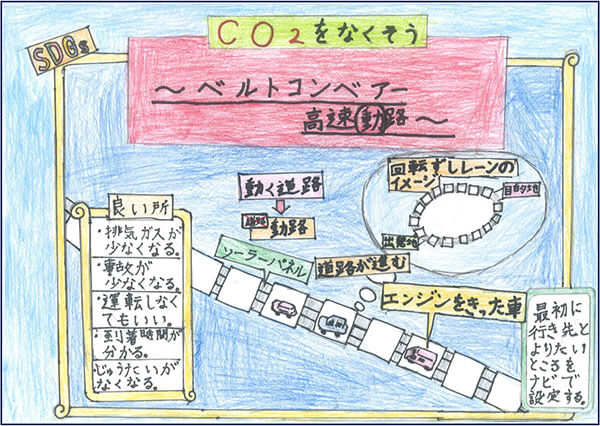 SDGs
CO2をなくそう
～ベルトコンベアー
高速動路～
動く道路
動路
回転ずしレーンの
イメージ
目的地
出発地
ソーラーパネル
道路が進む
エンジンをきった車
良い所
・排気ガスが
少なくなる。
・事故が
少なくなる。
・運転しなく
てもいい。
・到着時間が
分かる。
じゅうたいが
なくなる。
最初に
行き先と
よりたい
ところを
ナビで
設定する。